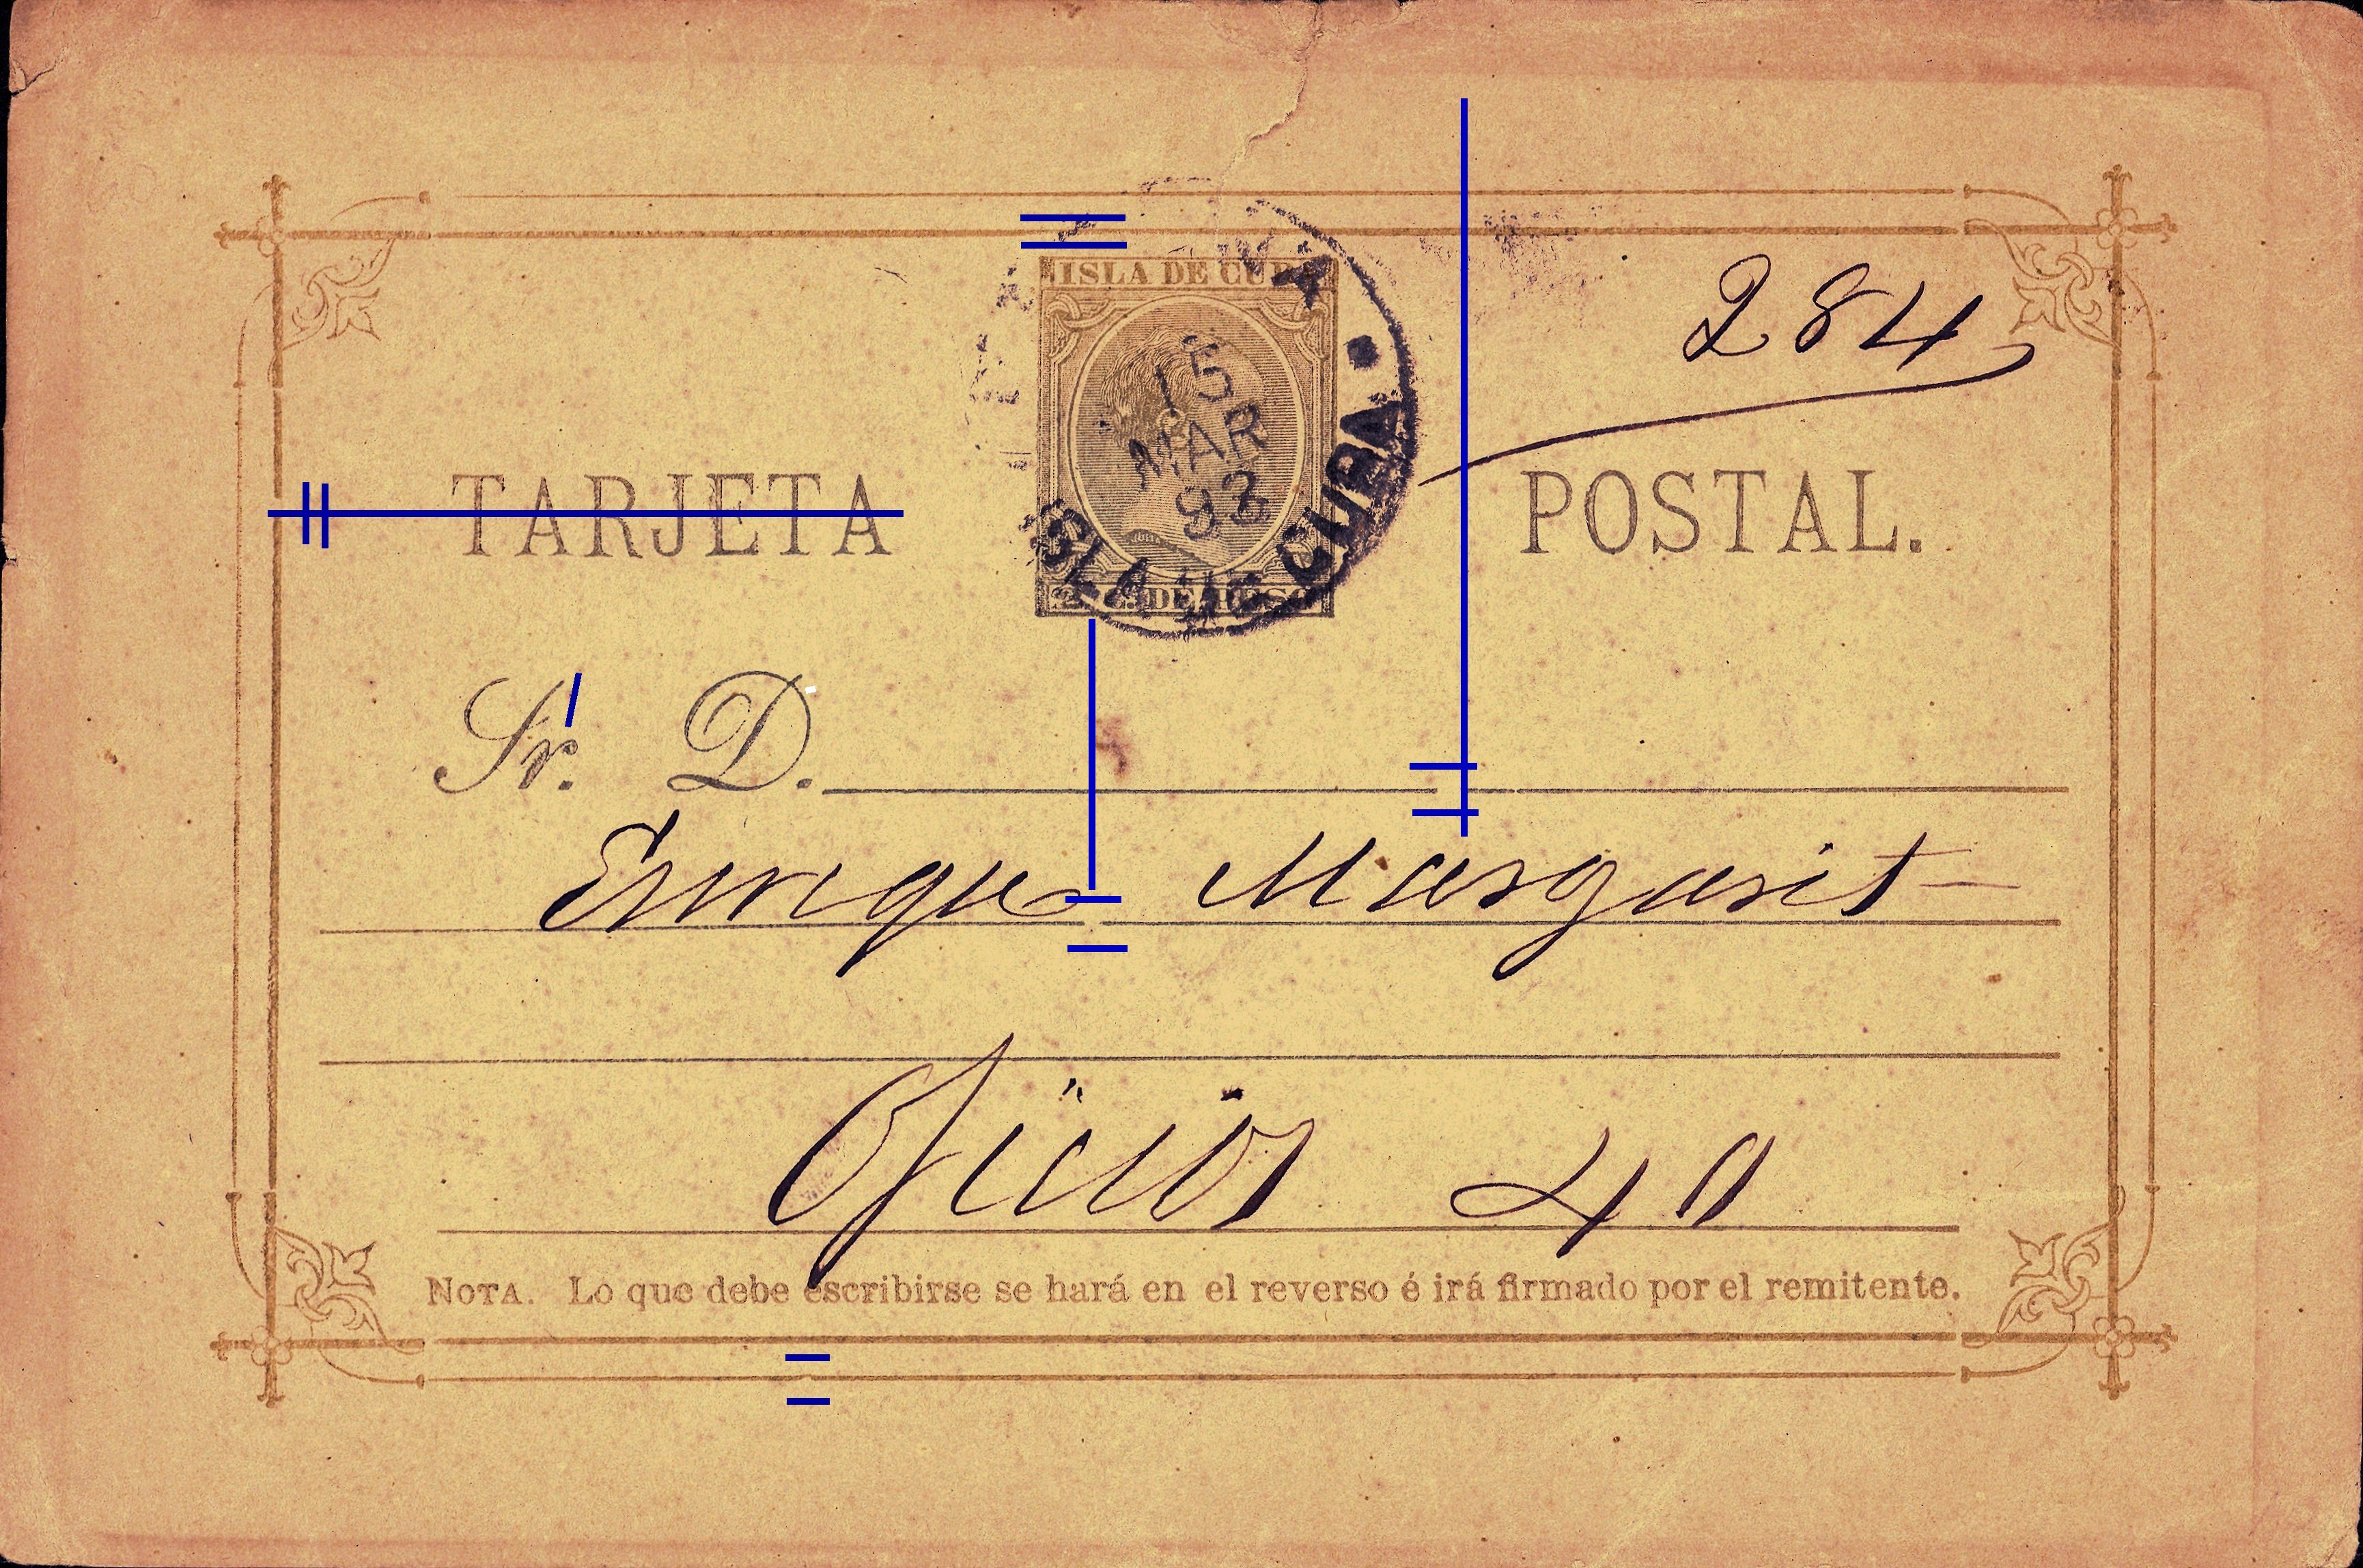 ISLA DE CUBA
284
15
MAR
93
ISLA DE CUBA
TARJETA POSTAL.
2 C. DE PESO
Sr. D.
Enrique Margarit
Oficios 40
NOTA. Lo que debe escribirse se hará en el reverso é irá firmado por el remitente.